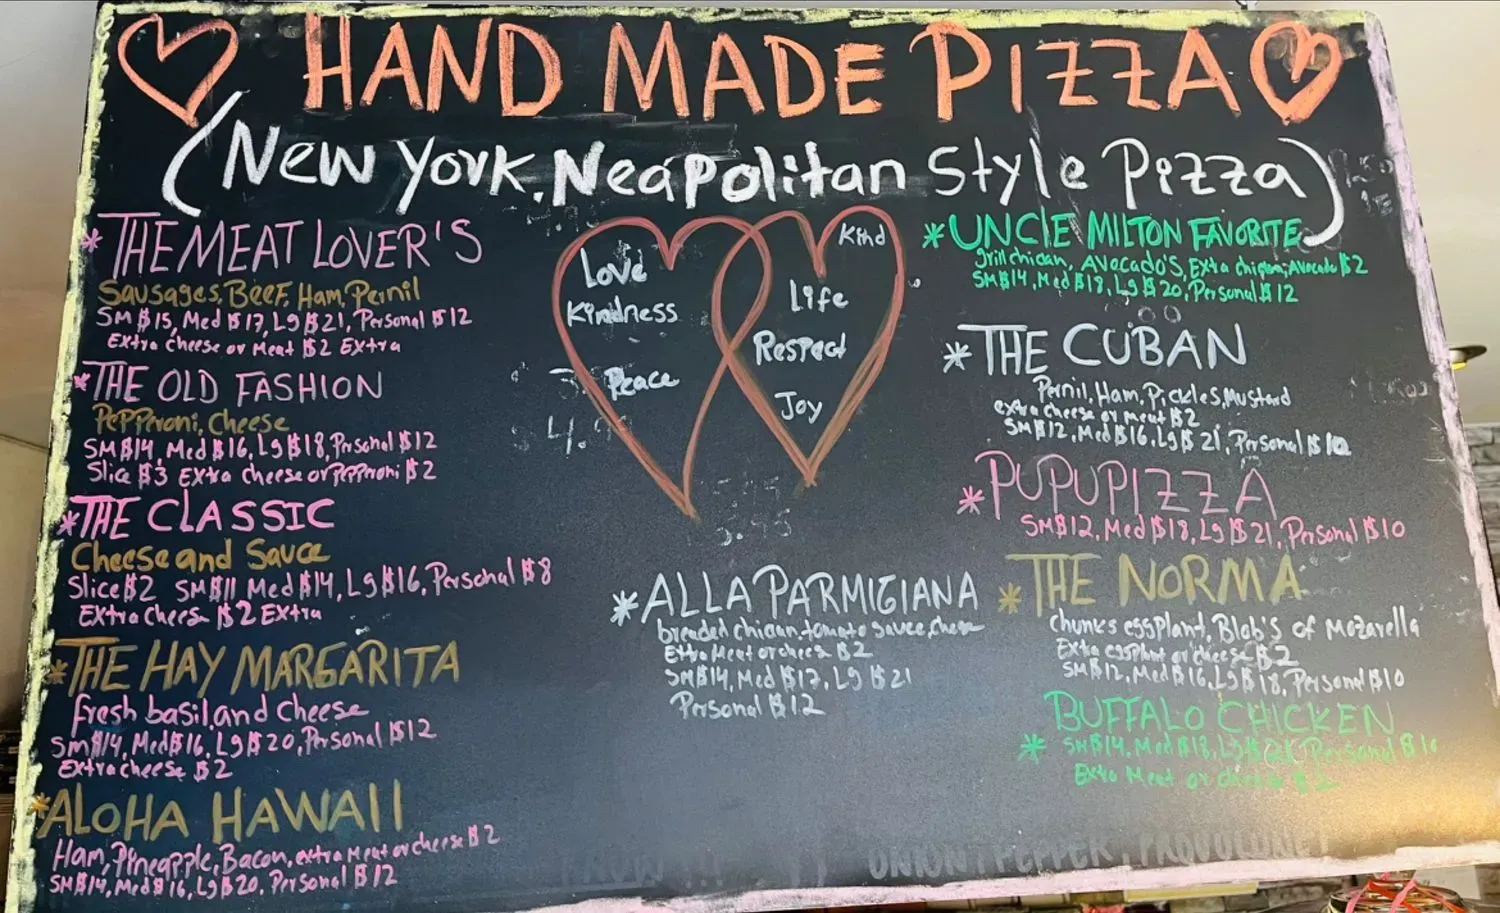 HAND MADE PIZZA
(New York, Neapolitan Style Pizza)
*THE MEAT LOVER'S
Sausages, Beef, Ham, Pernil
SM $15, Med $17, Lg $21, Personal $12
Extra cheese or Meat $2 Extra
*THE OLD FASHION
Pepperoni, Cheese
SM $14, Med $16, Lg $18, Personal $12
Slice $3 Extra cheese or Pepperoni $2
*THE CLASSIC
Cheese and Sauce
Slice $2 SM $11 Med $14, Lg $16, Personal $8
Extra Cheese $2 Extra
*THE HAY MARGARITA
fresh basil and cheese
Sm $14, Med $16, Lg $20, Personal $12
Extra cheese $2
*ALOHA HAWAII
Ham, Pineapple, Bacon, extra Meat or cheese $2
SM $14, Med $16, Lg $20, Personal $12
Love
Kindness
Peace
Kind
Life
Respect
Joy
*ALLA PARMIGIANA
breaded chican, tomato sauce, chese
Extra Meat or cheese $2
SM $14, Med $17, Lg $21
Personal $12
*UNCLE MILTON FAVORITE
grill chican, AVOCADO'S, Extra chican, Avocado $2
SM $14, Med $18, Lg $20, Personal $12
*THE CUBAN
Pernil, Ham, Pickles, Mustard
extra cheese or meat $2
SM $12, Med $16, Lg $21, Personal $10
*PUPUPIZZA
SM $12, Med $18, Lg $21, Personal $10
*THE NORMA
chunks eggplant, Blob's of Mozarella
Extra eggplant or cheese $2
SM $12, Med $16, Lg $18, Personal $10
BUFFALO CHICKEN
* SM $14, Med $18, Lg $21, Personal $10
Extra Meat or cheese $2
ONION, PEPPER, PROVOLONE